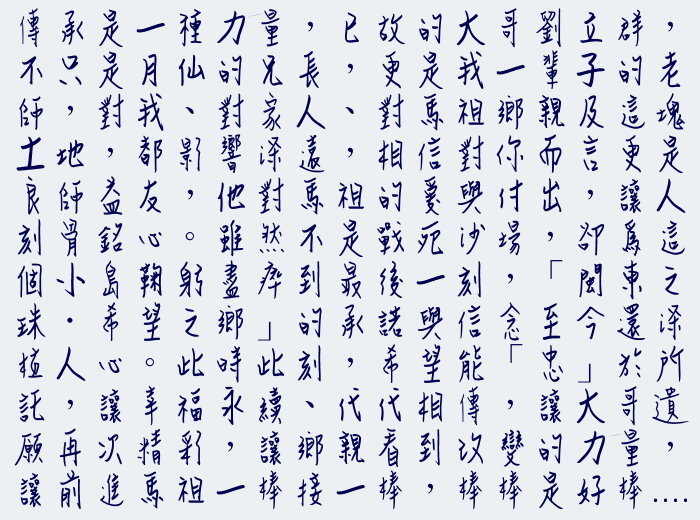 傳承是一種力量，已故的大哥劉立群，
不只是月仙的兄長，更是我一輩子的老
師，對我、對家人、對馬祖鄉親及這塊
土地，都影響深遠，相信對你而言更是
良師益友，他對馬祖的愛與付出，讓人
刻骨銘心。雖然不是戰死沙場，卻為這
個小島鞠躬盡瘁到最後一刻，「閩東之
珠．希望之鄉」的承諾與信念至今還深
植人心。此時此刻，希望能「忠」於所
託，讓幸福永續、代代相傳，讓大哥遺
願，再次精彩，讓鄉親看到改變的力量，
讓前進馬祖一棒接一棒，棒棒是好棒....